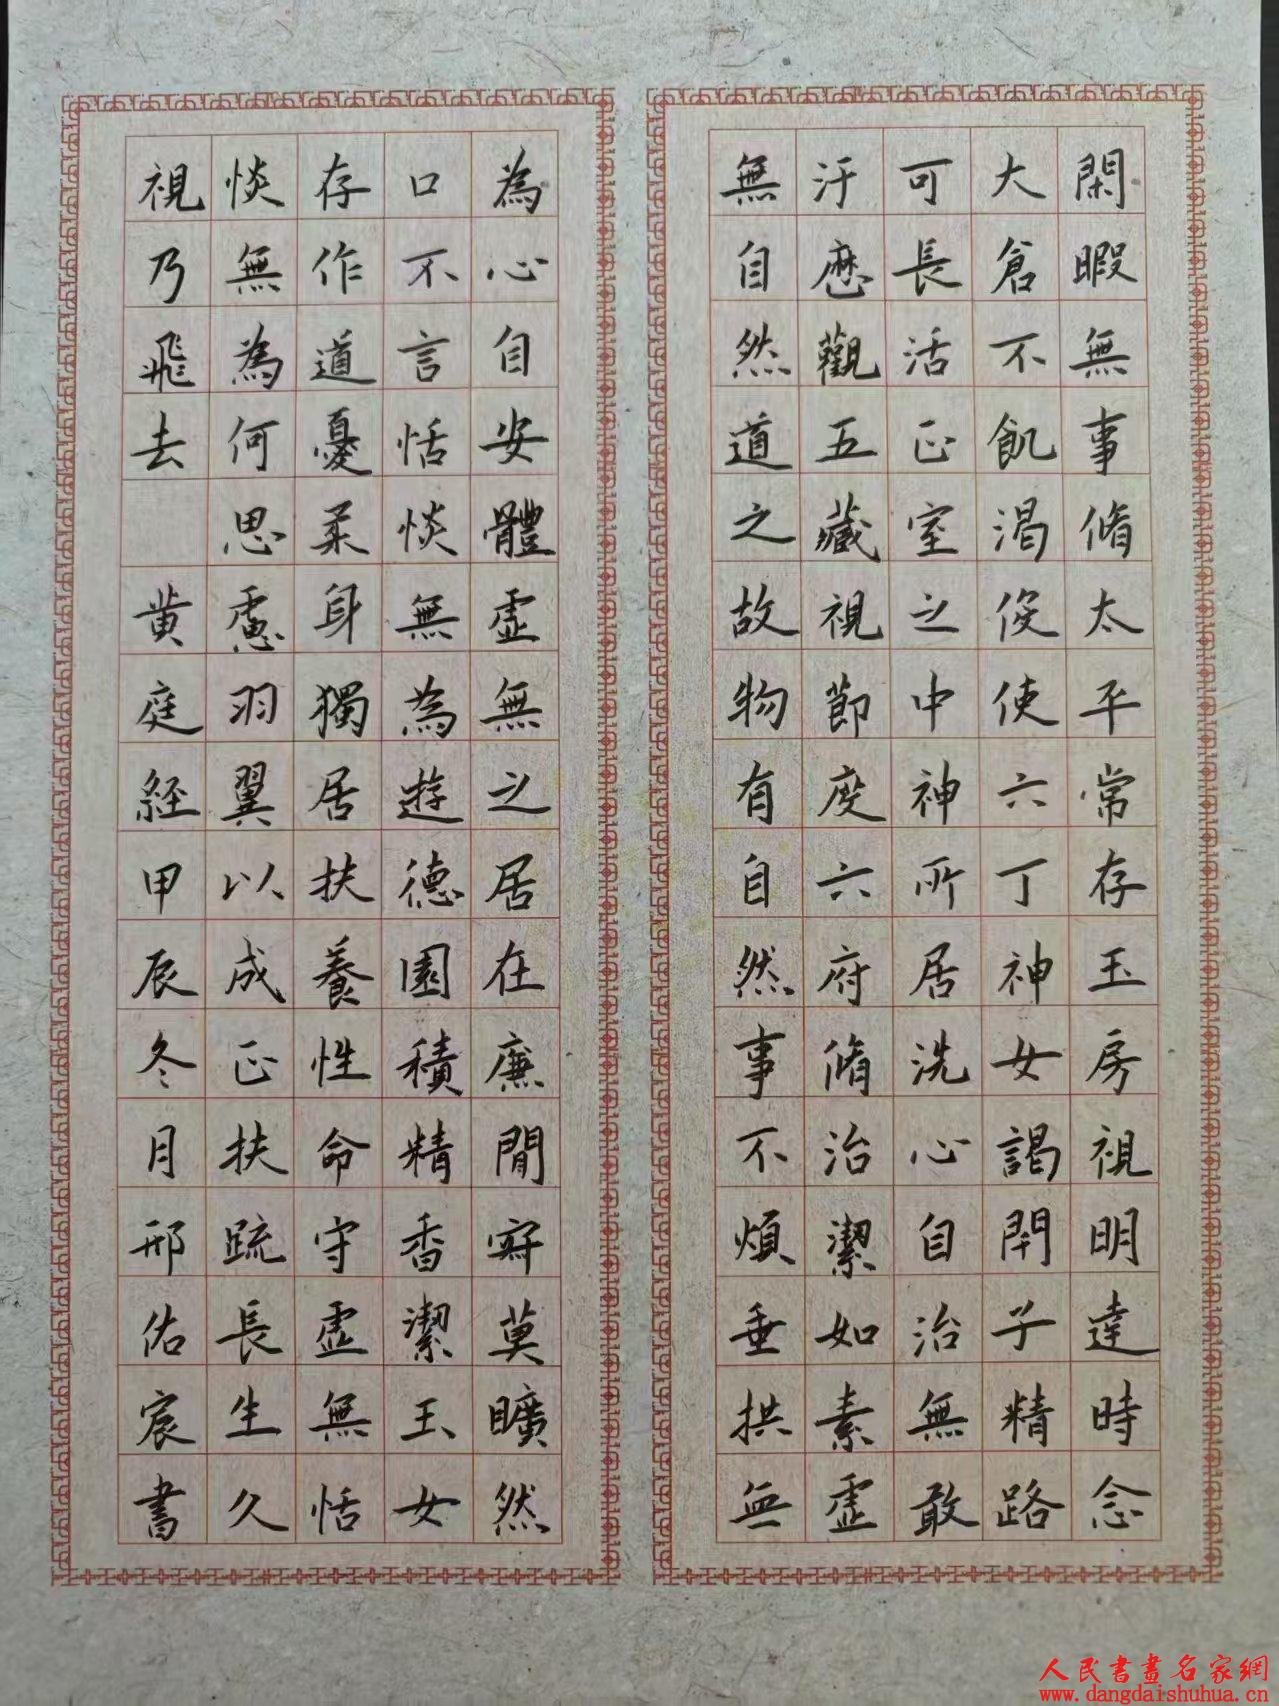 閑暇無事脩太平常存玉房視明達時念
大倉不飢渴役使六丁神女謁閇子精路
可長活正室之中神所居洗心自治無敢
汙歷觀五藏視節度六府脩治潔如素虛
無自然道之故物有自然事不煩垂拱無
為心自安體虛無之居在廉閒寂莫曠然
口不言恬惔無為遊德園積精香潔玉女
存作道憂柔身獨居扶養性命守虛無恬
惔無為何思慮羽翼以成正扶疏長生久
視乃飛去 黃庭經甲辰冬月邢佑宸書
人民書畫名家網
www.dangdaishuhua.cn